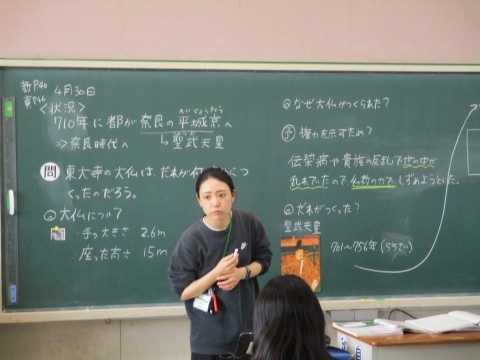 教P40
資P46
4月30日
<状況>
710年に都が奈良の平城京へ
へいじょうきょう
→奈良時代へ
↳聖武天皇
問 東大寺の大仏は、だれが何
つ
くったのだろう。
◎大仏について
・手の大きさ 2.6m
座った高さ 15m
◎なぜ大仏がつくられた?
予 権力を示すため?
伝染病や貴族の反乱で世の中が
乱れていたので、仏教の力で しずめようとした。
◎だれがつくった?
聖武天皇
701〜756年